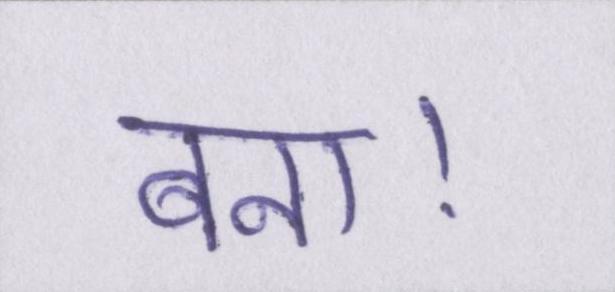 बना!